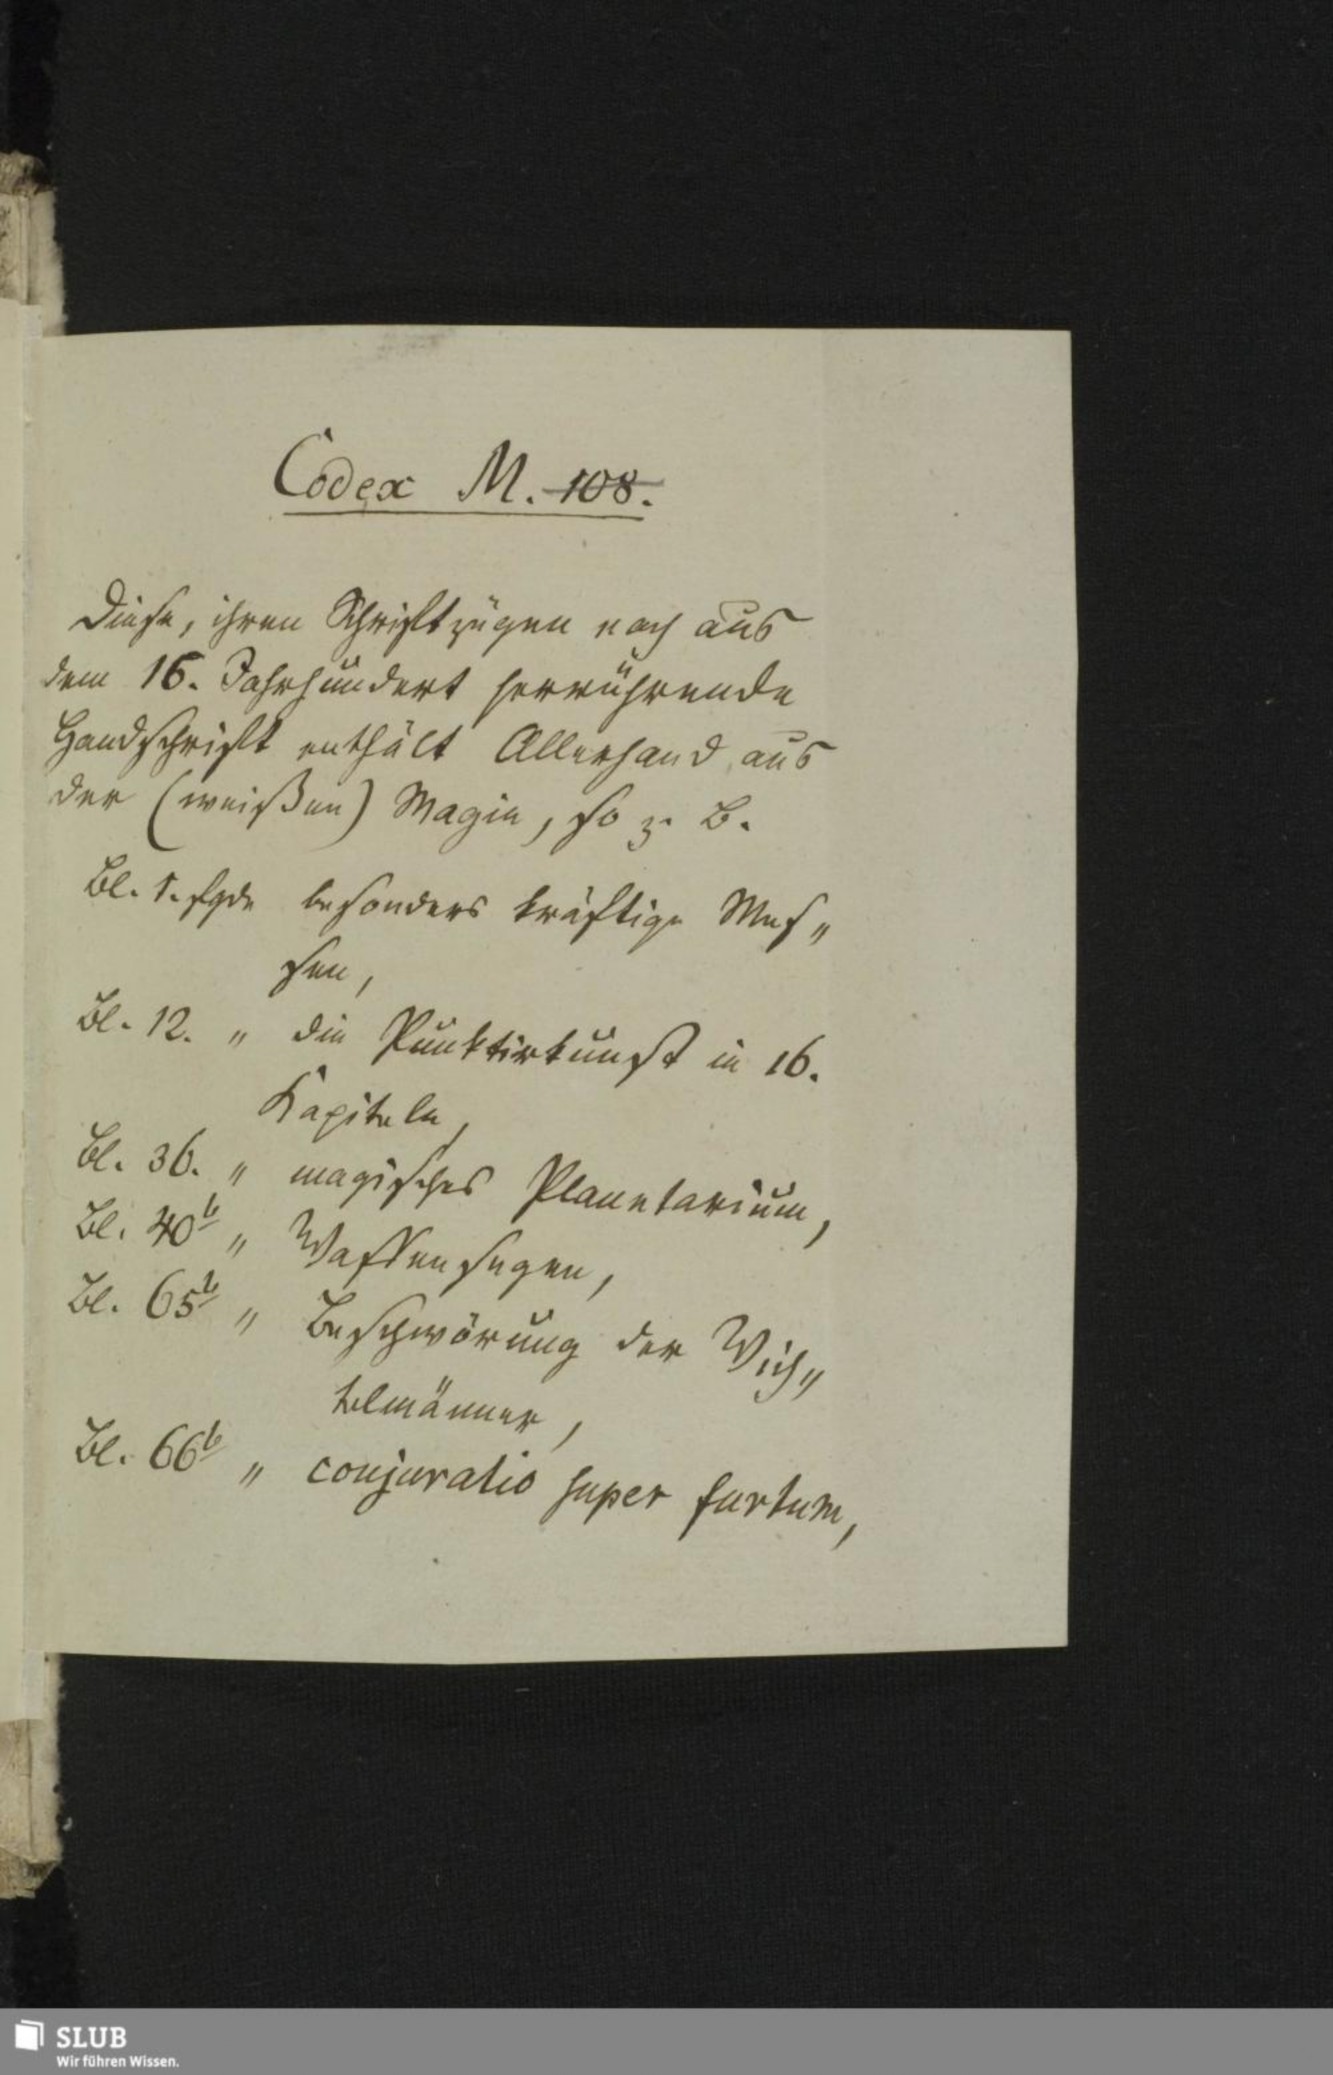 Codex M. 108.
Diese, ihren Schriftzügen nach aus
dem 16. Jahrhundert herrührende
Handschrift enthält Allerhand aus
der (weißen) Magie, so z. B.
Bl. 1. flgde besonders kräftige Mes„
sen,
Bl. 12. „ die Punktirkunst in 16.
Kapiteln,
Bl. 36. „ magisches Planetarium,
Bl. 40b „ Waffensegen,
Bl. 65b „ Beschwörung der Wich„
telmänner,
Bl. 66b „ conjuratio super furtum,
SLUB
Wir führen Wissen.